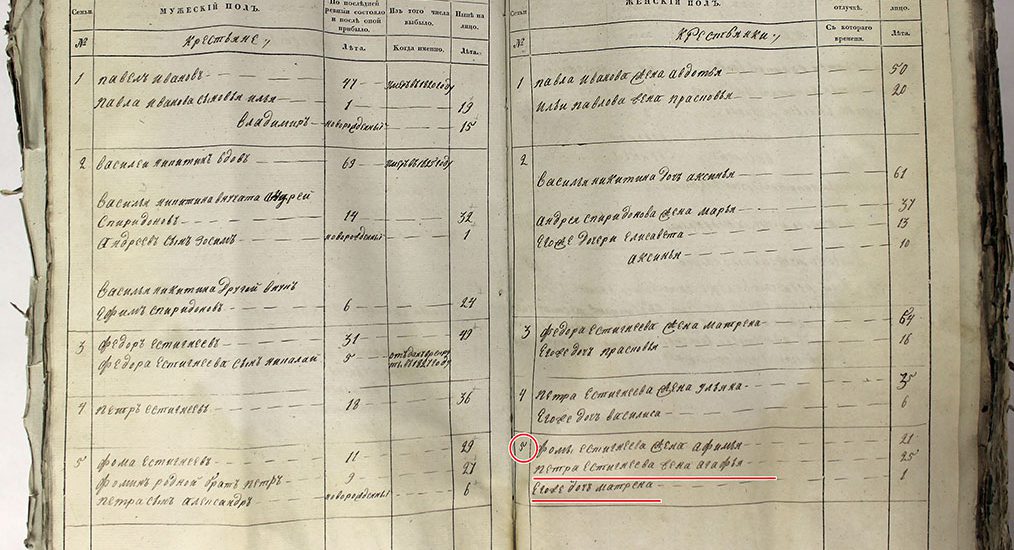 Семьи.
МУЖЕСКІЙ ПОЛЪ.
По последней ревизіи состояло и послѣ оной прибыло.
Изъ того числа выбыло.
Нынѣ на лицо.
№
Крестьяне,
Лѣта.
Когда именно.
Лѣта.
1 Павелъ Ивановъ 47 умръ въ 1820 году
Павла Иванова сыновья Илья 1 19
Владимиръ новорожденный 15
2 Василеи Никитинъ вдовъ 69 умръ въ 1825 году
Василья Никитина внучата Андрей
Спиридоновъ 14 32
Андреевъ сынъ Зосимъ новорожденный 1
Василья Никитина другой внукъ
Ефимъ Спиридоновъ 6 24
3 Федоръ Естигнеевъ 31 49
Федора Естигнеева сынъ Николай 5 отданъ в рекруты въ 1827 году
4 Петръ Естигнеевъ 18 36
5 Фома Естигнеевъ 11 29
Фоминъ родной братъ Петръ 9 27
Петра сынъ Александръ новорожденный 6
Семьи.
ЖЕНСКІЙ ПОЛЪ.
отлучкѣ.
лицо.
№
Крестьянки,
Съ котораго времени.
Лѣта.
1 Павла Иванова жена Авдотья 50
Ильи Павлова жена Прасковья 20
2
Василья Никитина дочь Аксинья 61
Андрея Спиридонова жена Марья 37
Егоже дочери Елисавета 13
Аксинья 10
3 Федора Естигнеева жена Матрена 54
Егоже дочь Прасковья 16
4 Петра Естигнеева жена Ульяна 35
Егоже дочь Василиса 6
5 Фомы Естигнеева жена Афимья 21
Петра Естигнеева жена Агафья 25
Егоже дочь Матрена 1